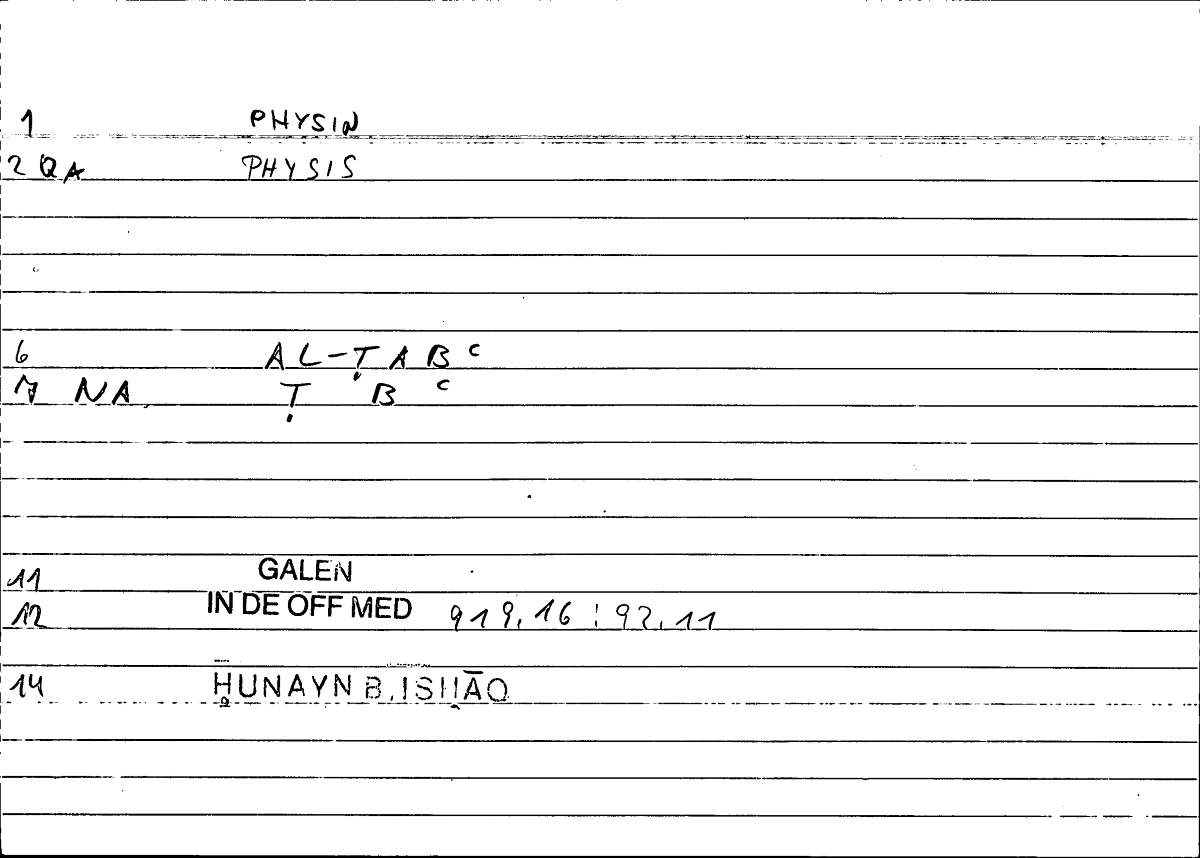 1 PHYSIN
2 QA PHYSIS
6 AL-ṬABʿ
7 NA Ṭ B ʿ
11 GALEN
12 IN DE OFF MED 919,16 : 92.11
14 ḤUNAYN B. ISḤĀQ